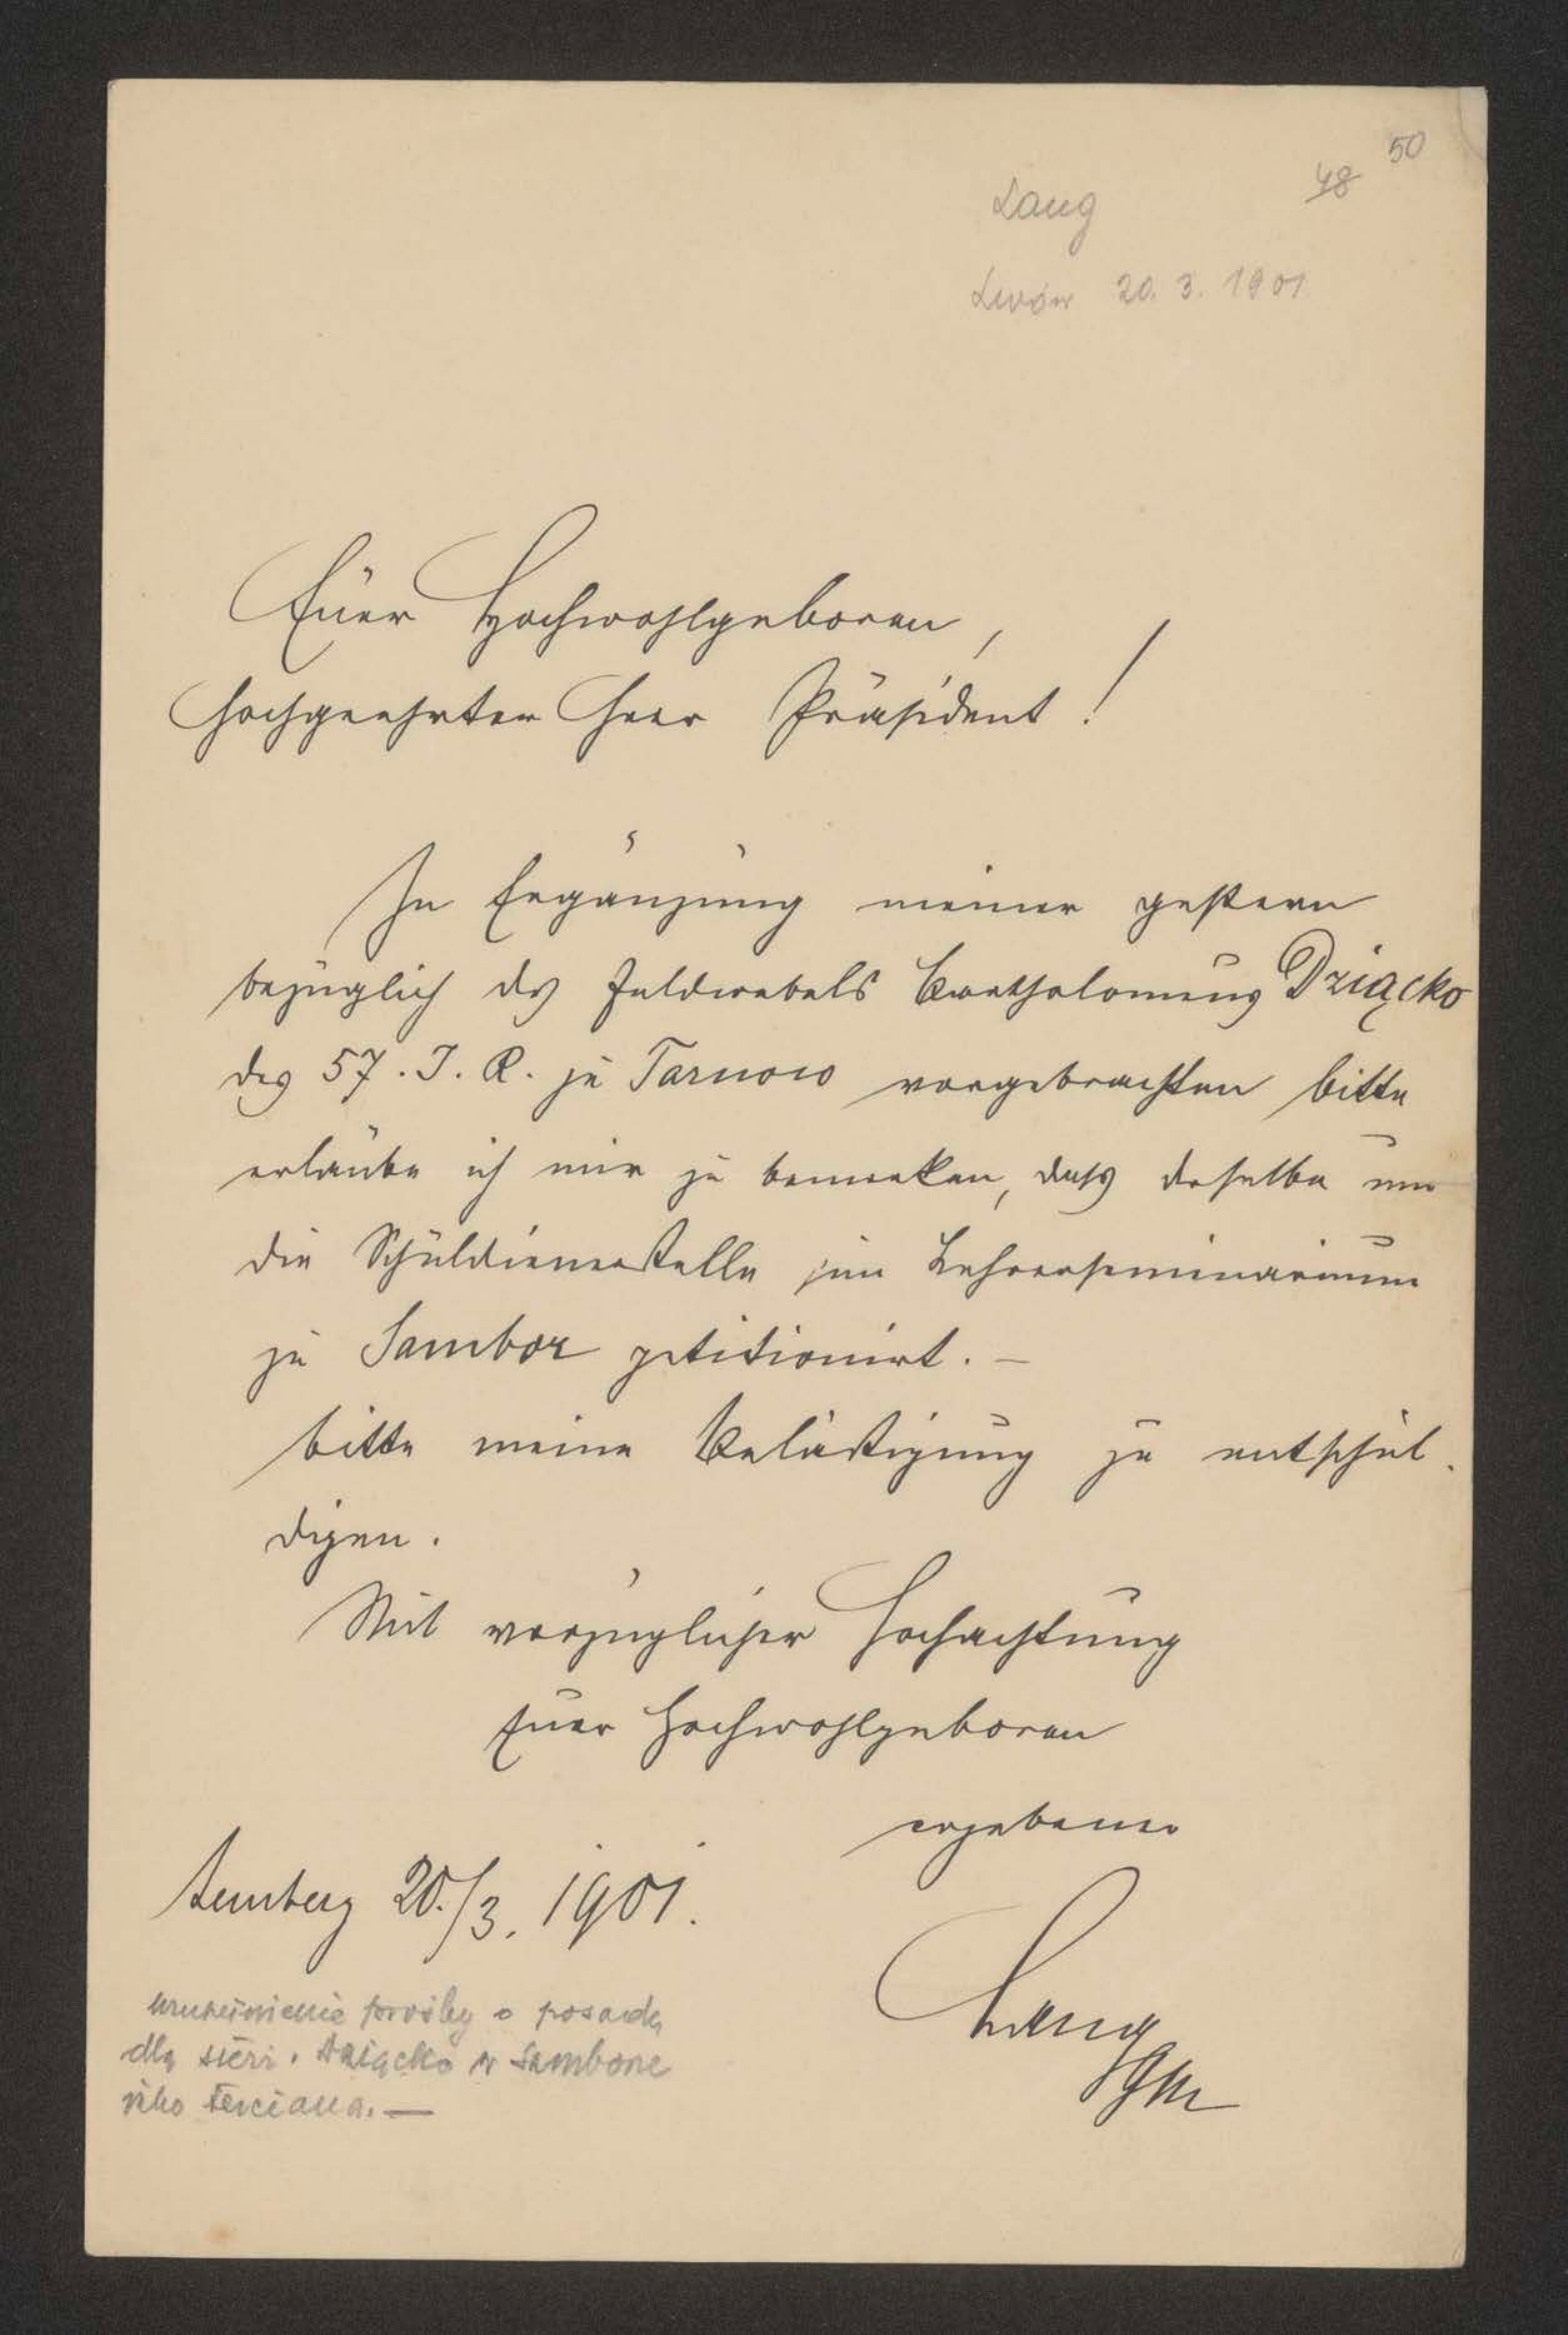 50
48
Lang
Lwów 20. 3. 1901
Euer Hochwohlgeboren,
Hochgeehrter Herr Präsident!
In Ergänzung meiner gestern
bezüglich des Feldwebels Bartholomeus Dziącko
des 57. I. R. zu Tarnow vorgebrachten Bitte
erlaube ich mir zu bemerken, dass derselbe um
die Schuldienerstelle im Lehrerseminarium
zu Sambor petitionirt. —
Bitte meine Belästigung zu entschul-
digen.
Mit vorzüglicher Hochachtung
Euer Hochwohlgeboren
ergebener
Lemberg 20./3. 1901.
Lang
prośby o posadę
dla sierż. Dziącko w Samborze
jako tercjana. —